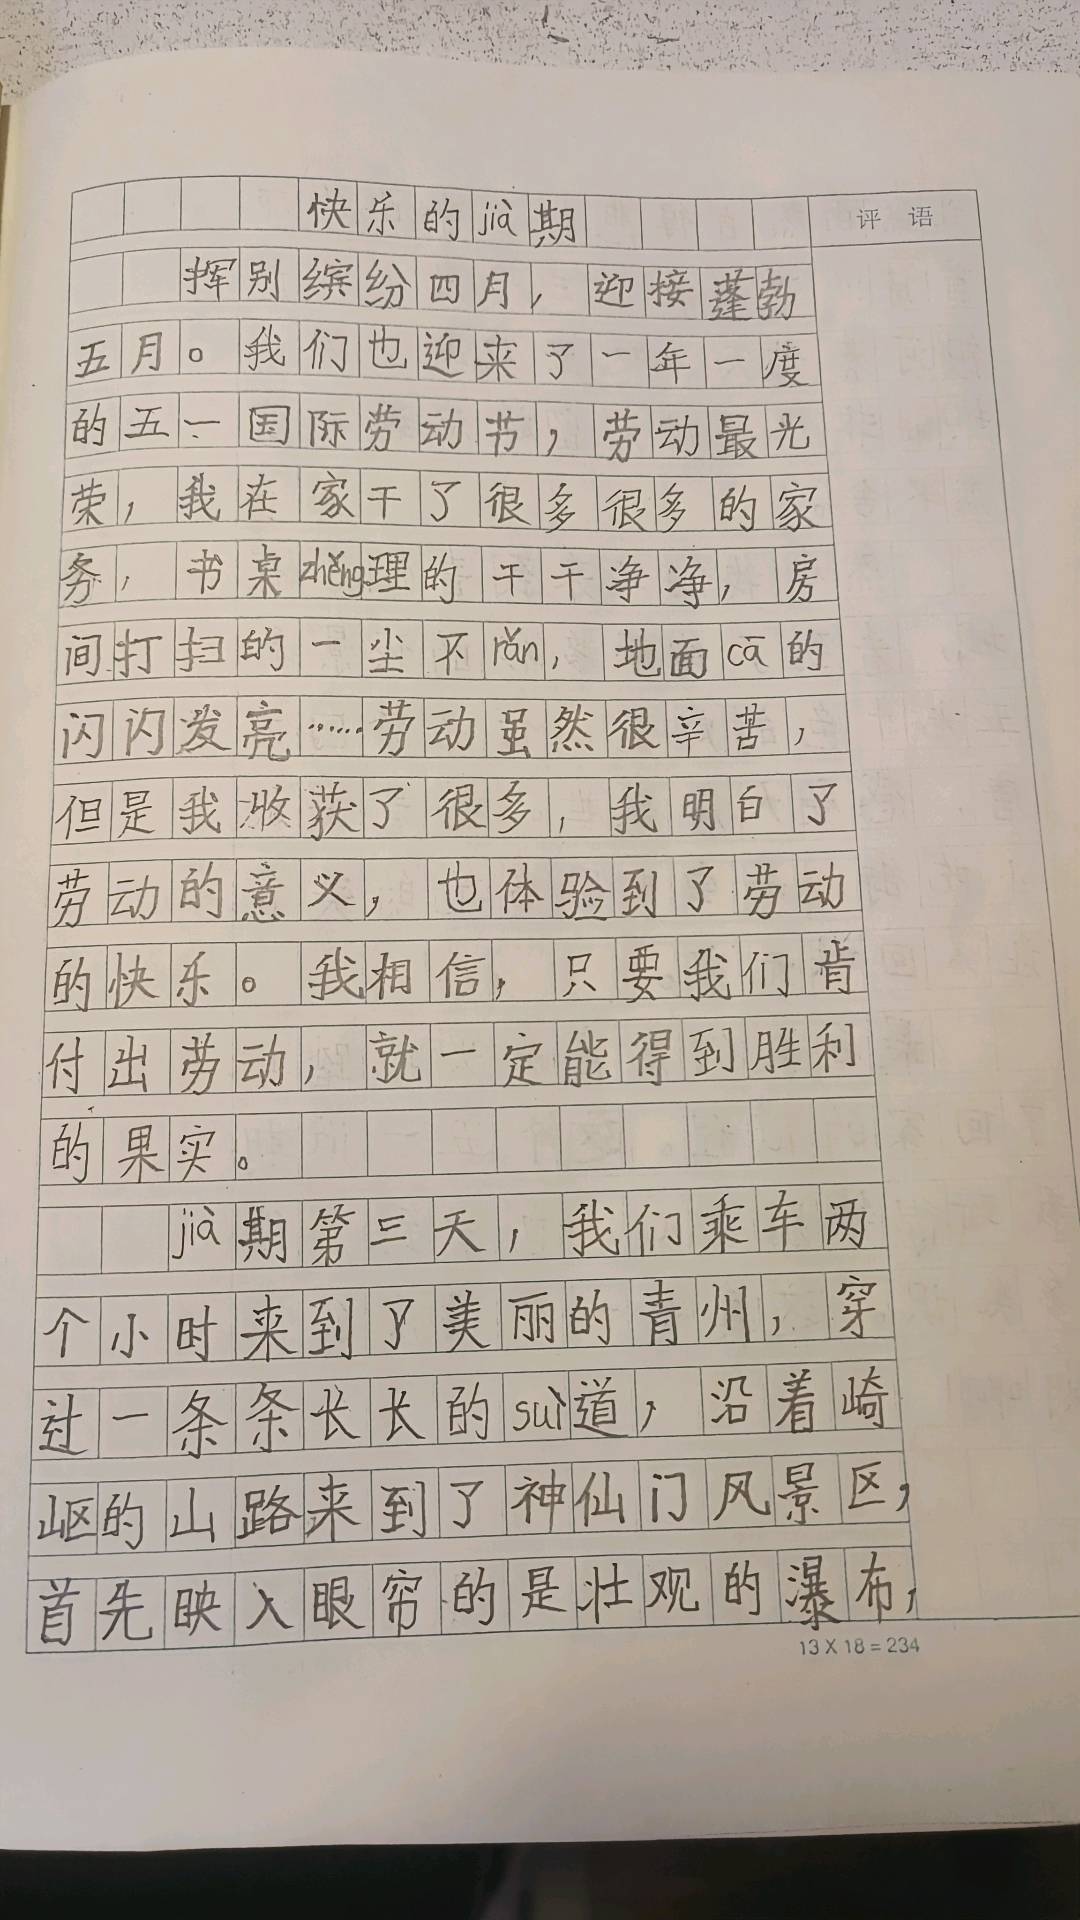 快乐的jià期
评语
挥别缤纷四月，迎接蓬勃
五月。我们也迎来了一年一度
的五一国际劳动节，劳动最光
荣，我在家干了很多很多的家
务，书桌zhěng理的干干净净，房
间打扫的一尘不rǎn，地面cā的
闪闪发亮……劳动虽然很辛苦，
但是我收获了很多，我明白了
劳动的意义，也体验到了劳动
的快乐。我相信，只要我们肯
付出劳动，就一定能得到胜利
的果实。
jià期第三天，我们乘车两
个小时来到了美丽的青州，穿
过一条条长长的suì道，沿着崎
岖的山路来到了神仙门风景区，
首先映入眼帘的是壮观的瀑布，
13 X 18 = 234